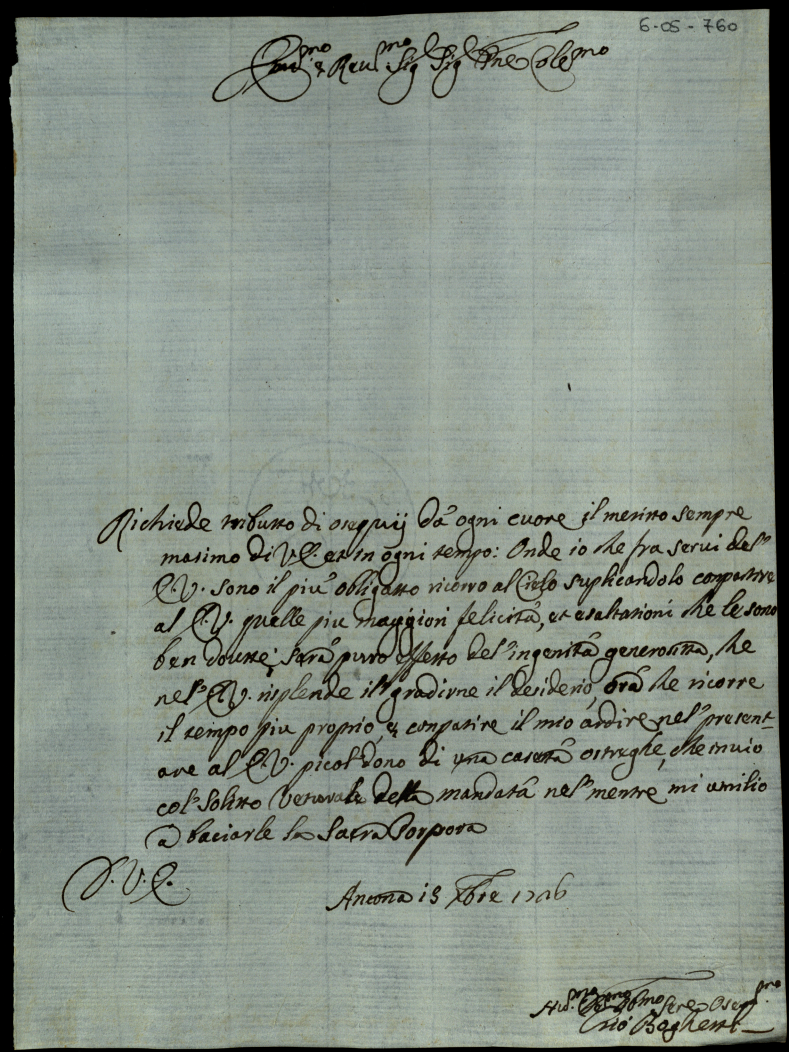 6-05-760
Em.mo e Reu.mo Sig Sig Pne Cole.mo
Richiede tributto di osequij dà ogni cuore il meritto sempre
masimo di V.E. et in ogni tempo: Onde io che fra serui del'
E.V. sono il più obligatto ricorro al Cielo suplicandolo conpartire
al E.V. quelle piu maggiori felicità, et esaltationi che le sono
ben doutte; sarà purro effetto del'ingenità generosittà, che
nel' E.V. risplende il' gradirne il desiderio, orà che ricorre
il tempo piu proprio, e conpatire il mio ardire nel' present=
are al E.V. picol' dono di una casettà ostreghe, che inuio
col' Solitto Veturale della mandatà nel' mentre mi umilio
à baciarle la Sacra Porpora
D.V.E.
Ancona 13 Xbre 1706
Hu.mo Sere Oseq.mo
Baghetti